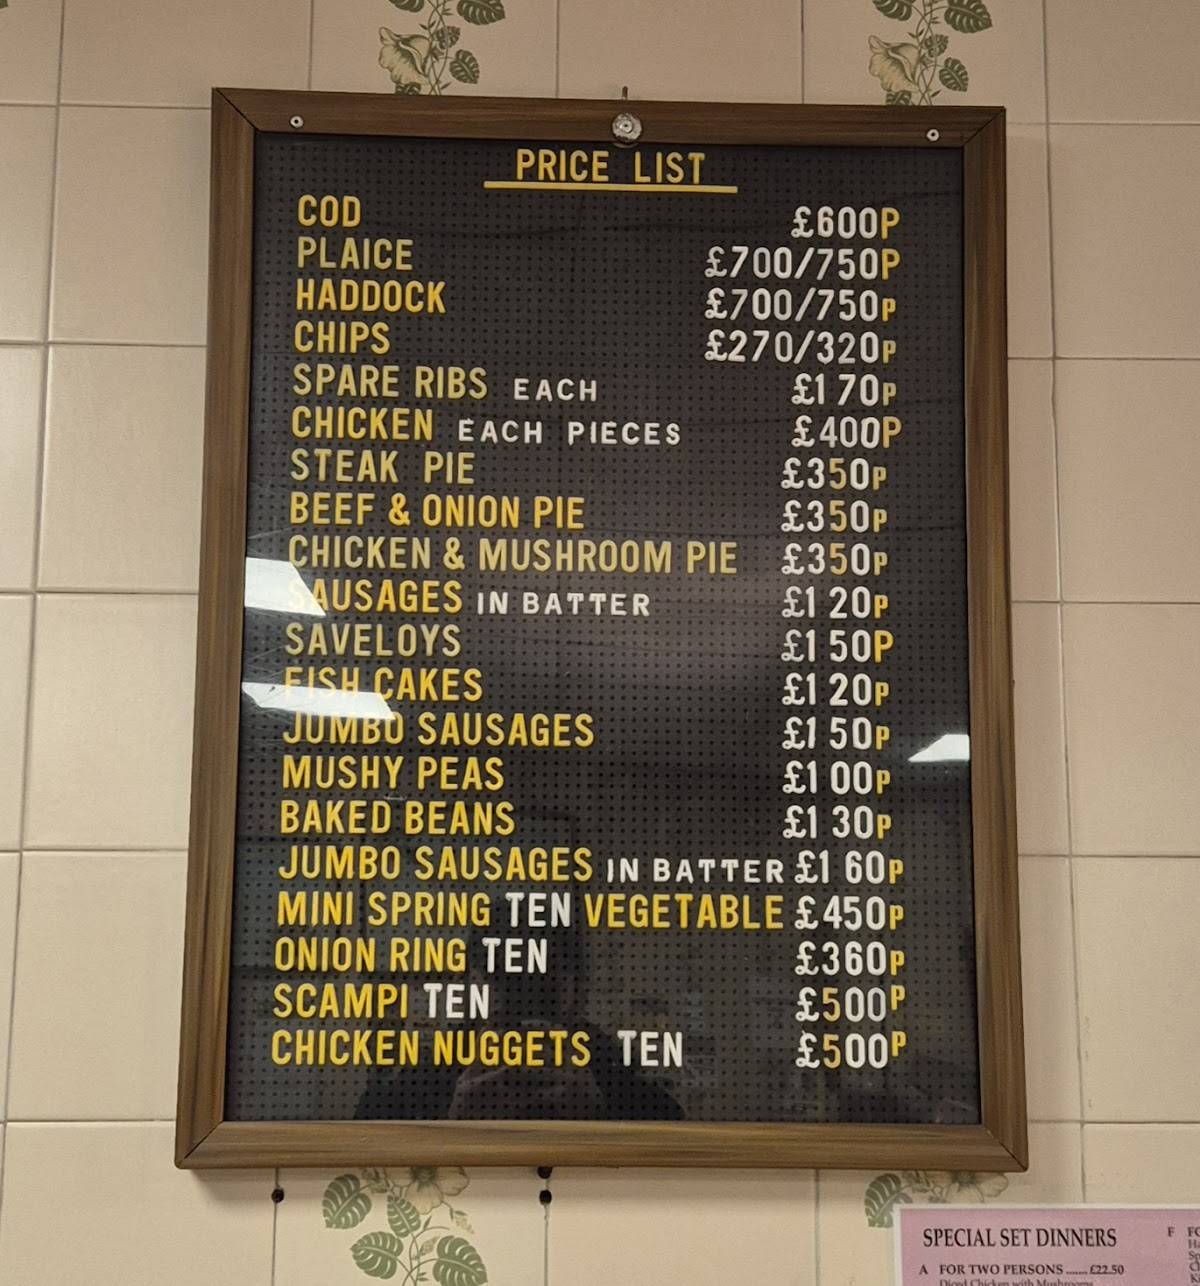 PRICE LIST
COD £600P
PLAICE £700/750P
HADDOCK £700/750P
CHIPS £270/320P
SPARE RIBS EACH £1 70P
CHICKEN EACH PIECES £400P
STEAK PIE £350P
BEEF & ONION PIE £350P
CHICKEN & MUSHROOM PIE £350P
SAUSAGES IN BATTER £1 20P
SAVELOYS £1 50P
FISH CAKES £1 20P
JUMBO SAUSAGES £1 50P
MUSHY PEAS £1 00P
BAKED BEANS £1 30P
JUMBO SAUSAGES IN BATTER £1 60P
MINI SPRING TEN VEGETABLE £450P
ONION RING TEN £360P
SCAMPI TEN £500P
CHICKEN NUGGETS TEN £500P
SPECIAL SET DINNERS F
A FOR TWO PERSONS ...... £22.50
Diced Chicken with Mushrooms